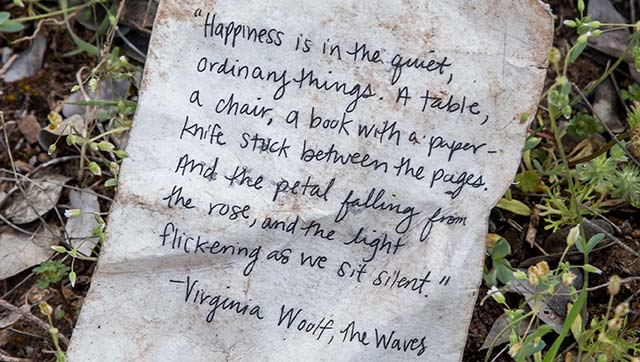 "Happiness is in the quiet,
ordinary things. A table,
a chair, a book with a paper-
knife stuck between the pages.
And the petal falling from
the rose, and the light
flickering as we sit silent."
-Virginia Woolf, the Waves